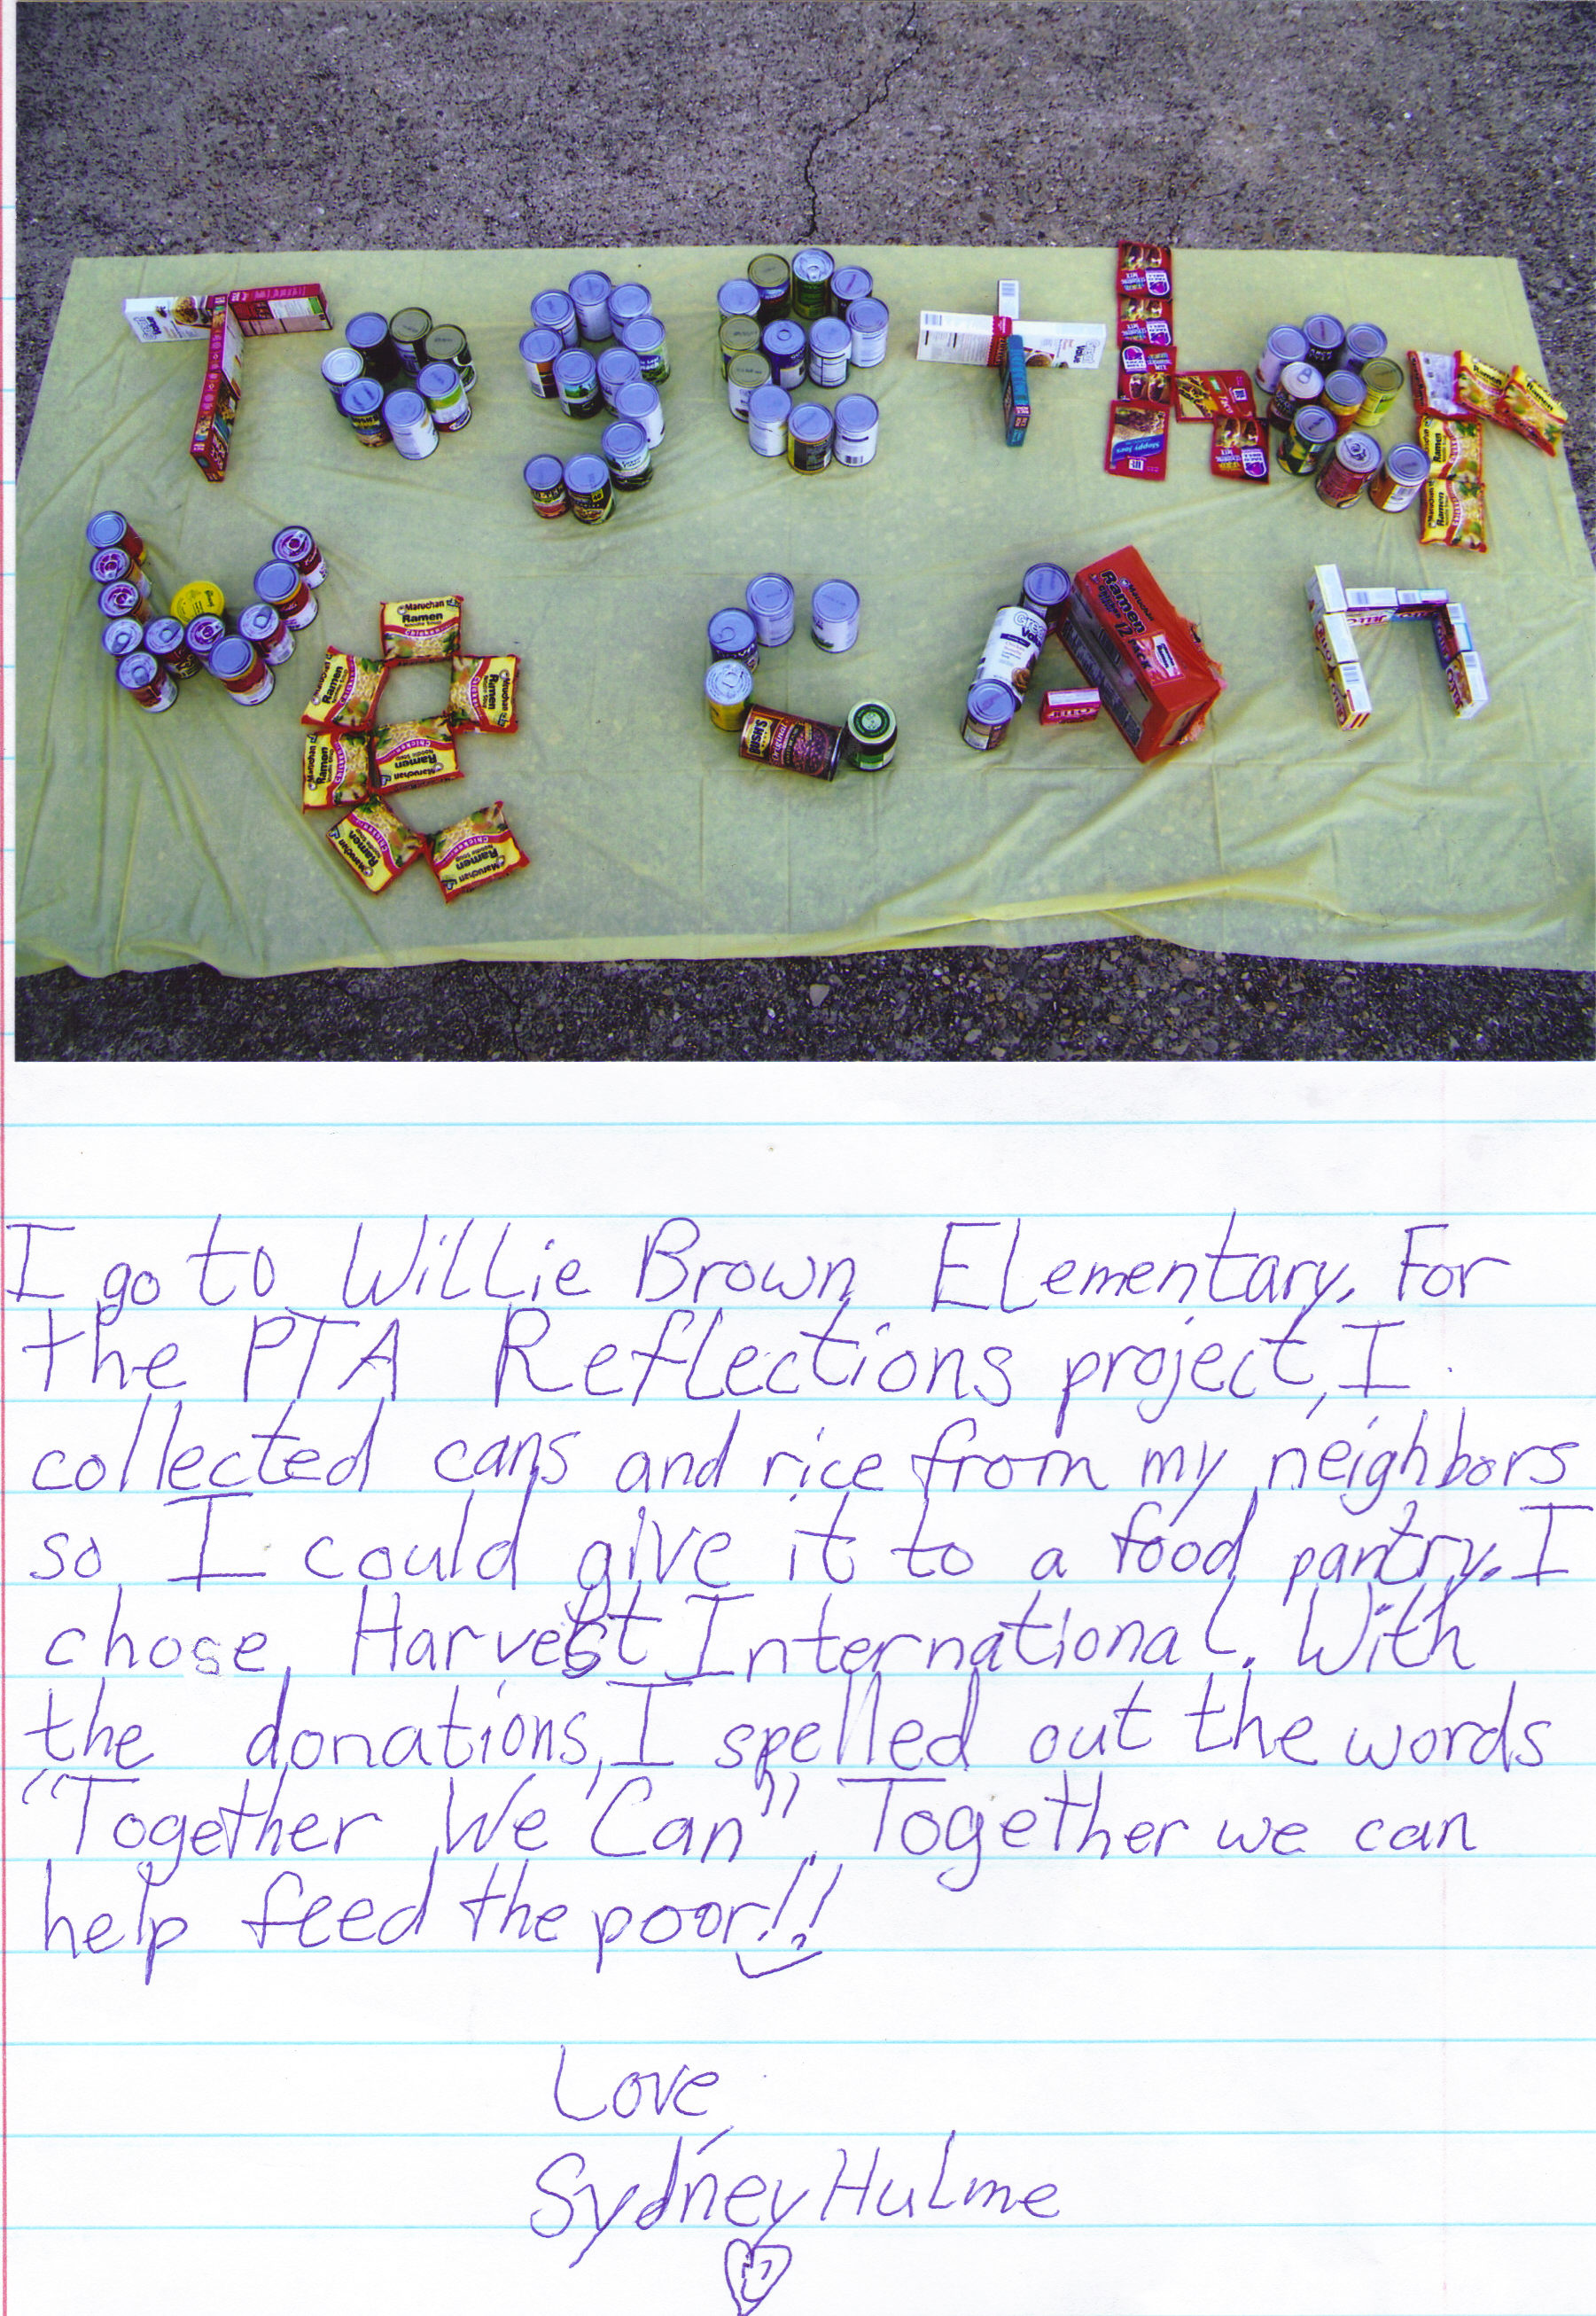 Together
We can
Maruchan
Ramen
BUSH'S
Original
Great Value
JELL-O
I go to Willie Brown Elementary. For
the PTA Reflections project, I
collected cans and rice from my neighbors
so I could give it to a food pantry. I
chose Harvest International. With
the donations, I spelled out the words
"Together We Can". Together we can
help feed the poor!!
Love,
Sydney Hulme